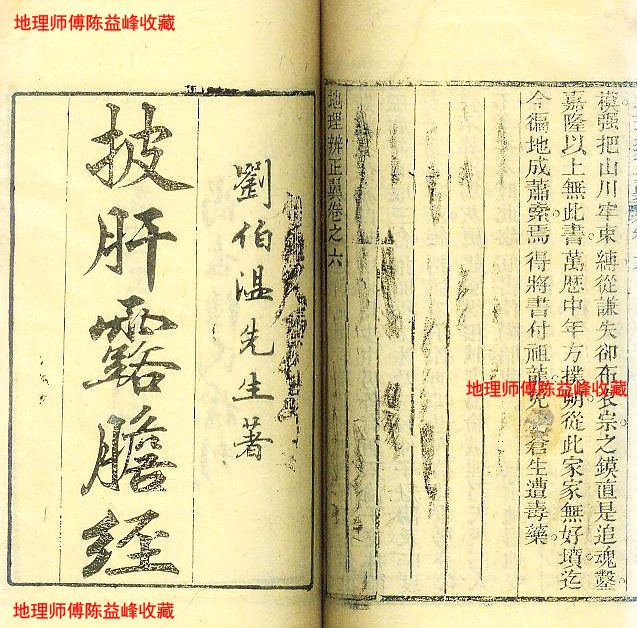 地理师傅陈益峰收藏
模强把山川牢束縛從謙失卻布衣宗之鏌直是追魂鑿
嘉隆以上無此書萬歷中年方撲朔從此家家無好墳迄
今徧地成蕭索焉得將書付祖龍免蒼生遭毒藥
地理辨正翼卷之六
地理师傅陈益峰收藏
劉伯温先生著
披肝露膽經
地理师傅陈益峰收藏